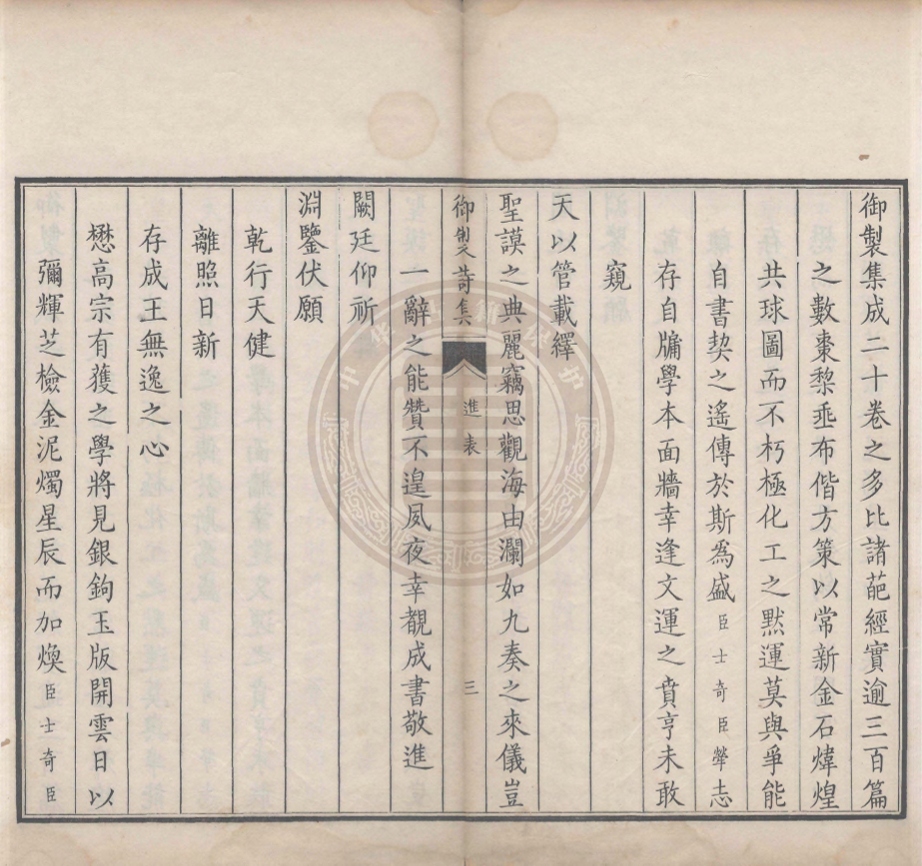 御製集成二十卷之多比諸葩經實逾三百篇
之數棗棃乖布偕方策以常新金石煒煌
共球圖而不朽極化工之黙運莫與爭能
自書契之遙傳於斯為盛臣士奇臣犖志
存自牖學本面牆幸逢文運之賁亨未敢
窺
天以管載繹
聖謨之典麗竊思觀海由瀾如九奏之來儀豈
御製詩集 進表 三
一辭之能贊不遑夙夜幸覩成書敬進
闕廷仰祈
淵鑒伏願
乾行天健
離照日新
存成王無逸之心
懋高宗有獲之學將見銀鉤玉版開雲日以
彌輝芝檢金泥燭星辰而加煥臣士奇臣